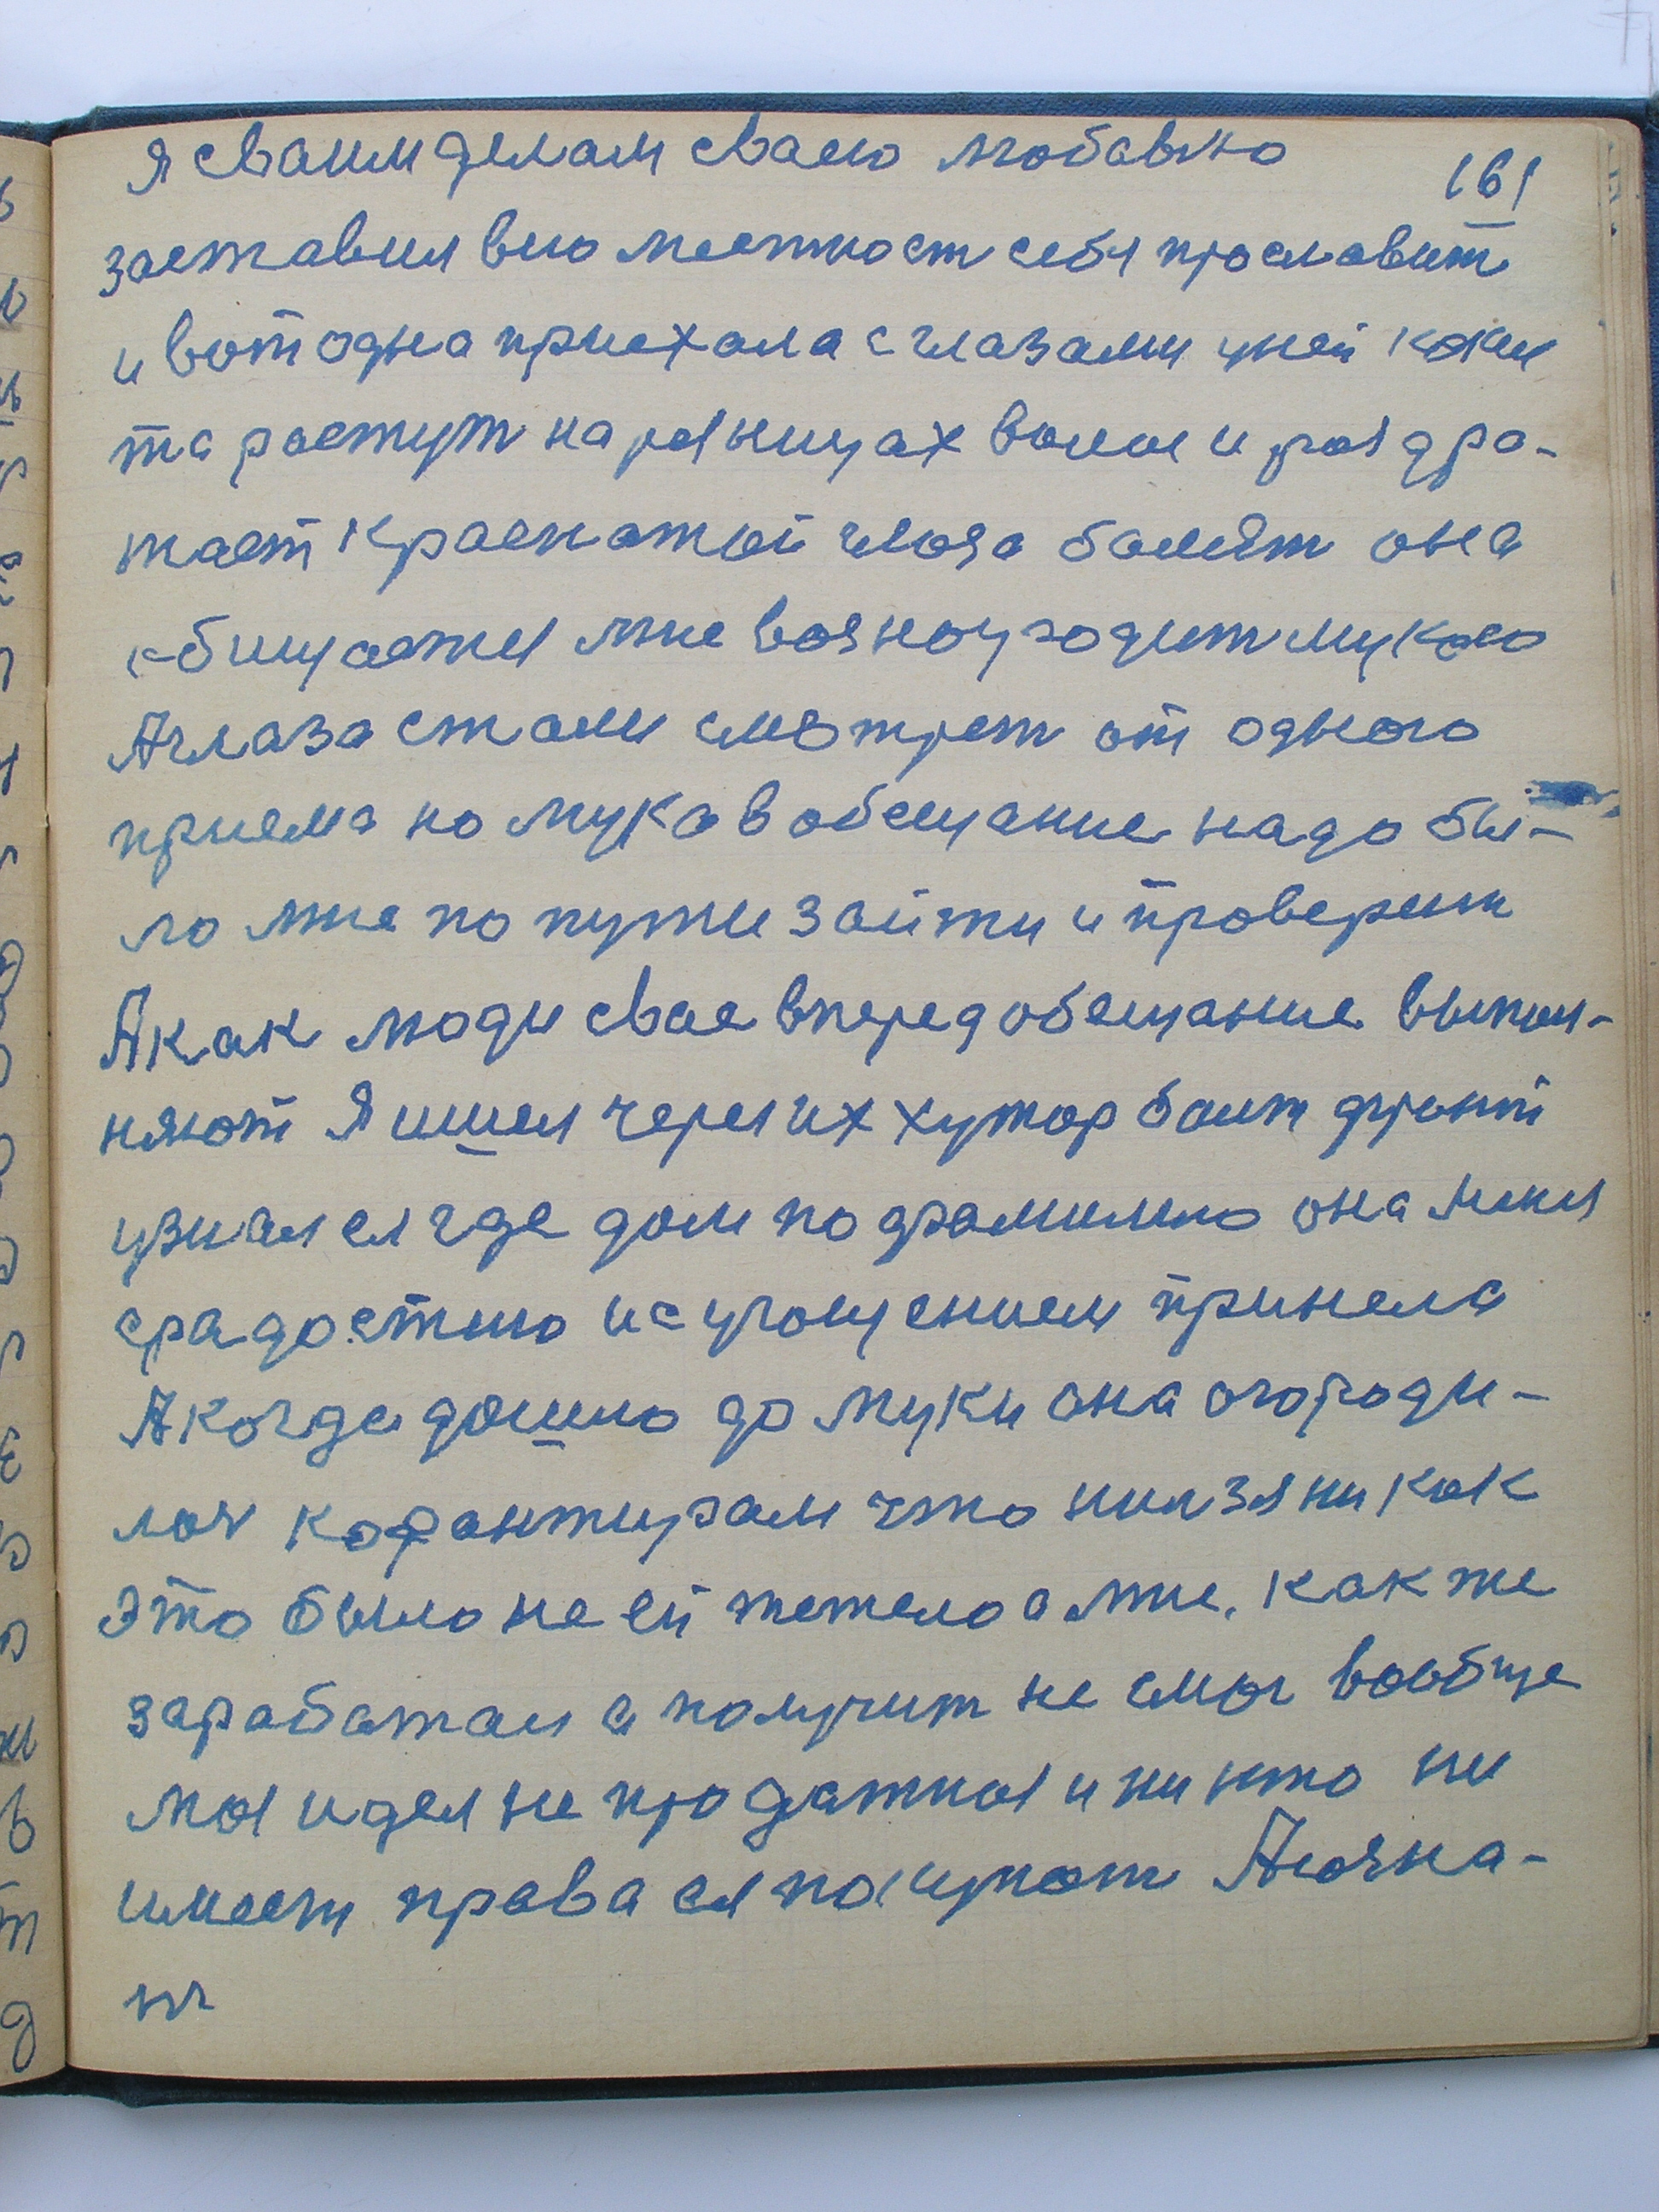 Я сваим делам сваею любавю
161
заставил ею местност себя прославит
и вот одна приехала с глазами у ней какие
та растут на реницах волос и раздра-
жает краснатой глаза балят она
обищается мне вознаугодит мукою
А глаза стали смотрет от одного
приема но мука в обещание надо бы-
ло мне по путе зайти и проверит
А как люди свае вперед обещание выпол-
няют Я ишел через их хутор
узнал ея где дом по фамилию она меня
срадостию и с угощением принела
А когда дошло до муки она огороди-
лас что нилзя никак
Это было не ей тежело а мне, как же
заработал а получит не смог вообще
моя идея не продатная и ни кто ни
имеет права ея покупат А